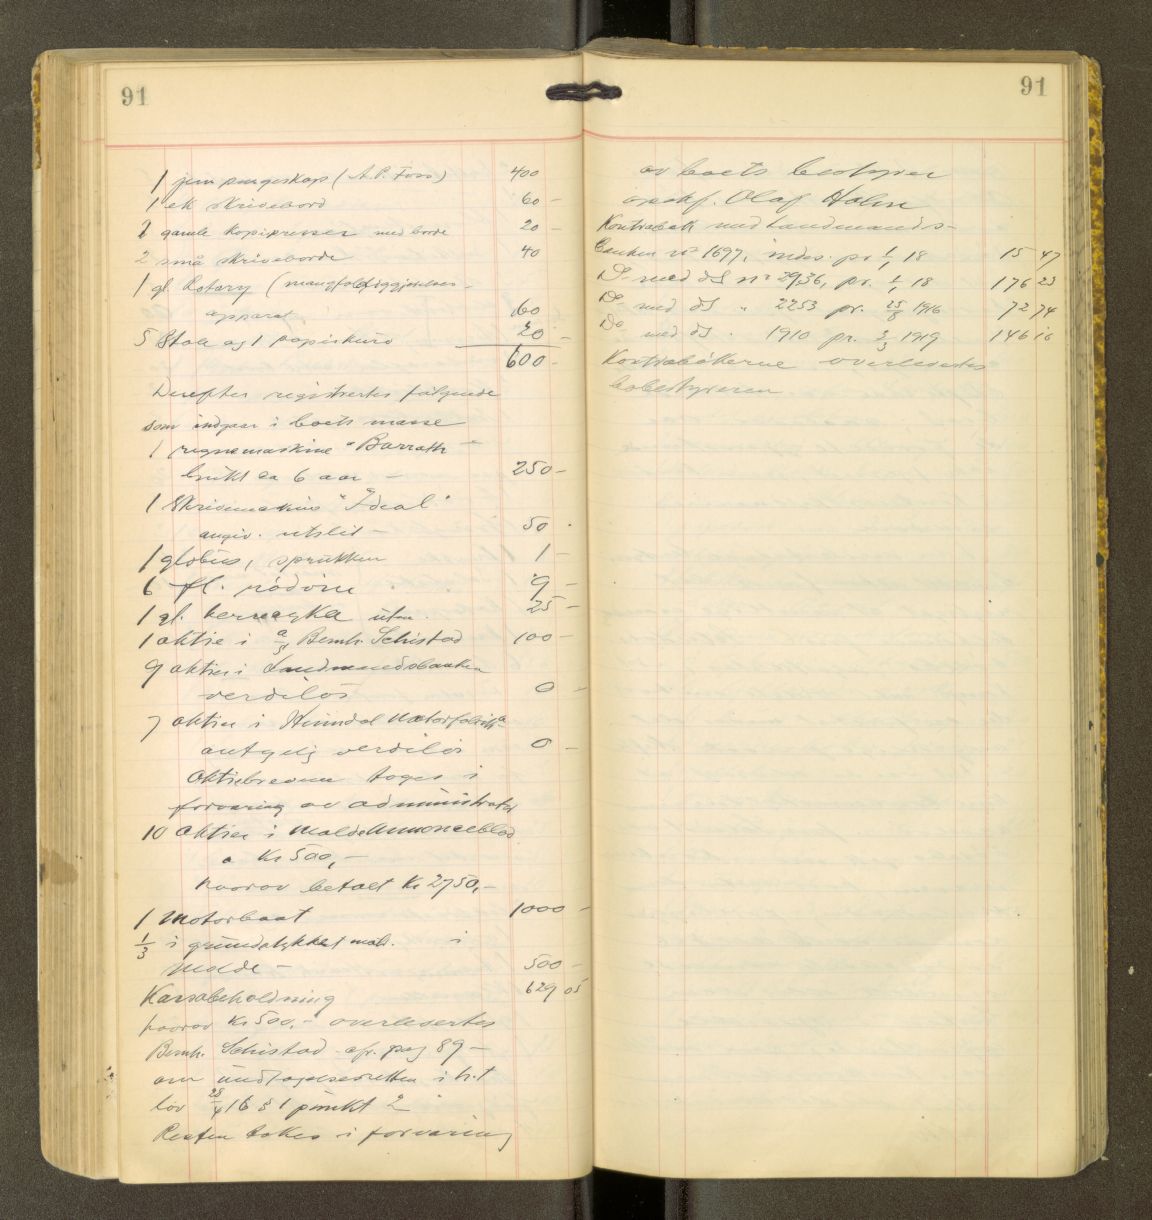 91
1 jern pengeskap (A. P. Foss) 400
1 ek skrivebord 60 -
2 gamle kopipresser med borde 20 -
2 små skriveborde 40
1 gl. Rotary (mangfoldiggjørelses-
apparat 60
5 Stole og 1 papirkurv 20 -
600 -
Derefter registrertes følgende
som indgaar i boets masse
1 regnemaskine "Barrath"
brukt ca 6 aar - 250 -
1 Skrivemaskine "Ideal"
angiv. utslit - 50 -
1 globus, sprukken 1 -
6 fl. rødvin 9 -
1 gl. uten 25 -
1 aktie i a/s Bernh. Schistad 100 -
9 aktier i Landmandsbanken
verdiløs 0 -
7 aktier i Heimdal Motorfabrik
antgelig verdiløs 0 -
Aktiebrevene toges i
forvaring av administrator
10 aktier i Molde Annonceblad
a Kr 500,-
hvorav betalt Kr 2750,-
1 Motorbaat 1000 -
1/3 i grundstykket matr. i
Molde - 500 -
Kassabeholdning 629 05
hvorav Kr 500,- overleveres
Bernh. Schistad cfr. pag 89 -
om undtagelsesretten i h.t
lov 28/4 16 § 1 punkt 2
Resten tokes i forvaring
91
av boets bestyrer
opskf. Olaf Holm
Kontrabok med Landmands-
banken No 1697, indes. pr 1/1 18 15 47
Do med dS No 2936, pr. 1/1 18 176 23
Do med dS " 2253 pr. 25/8 1916 72 74
Do med dS " 1910 pr. 3/3 1919 146 16
Kontrabøkerne overleveres
bobestyreren